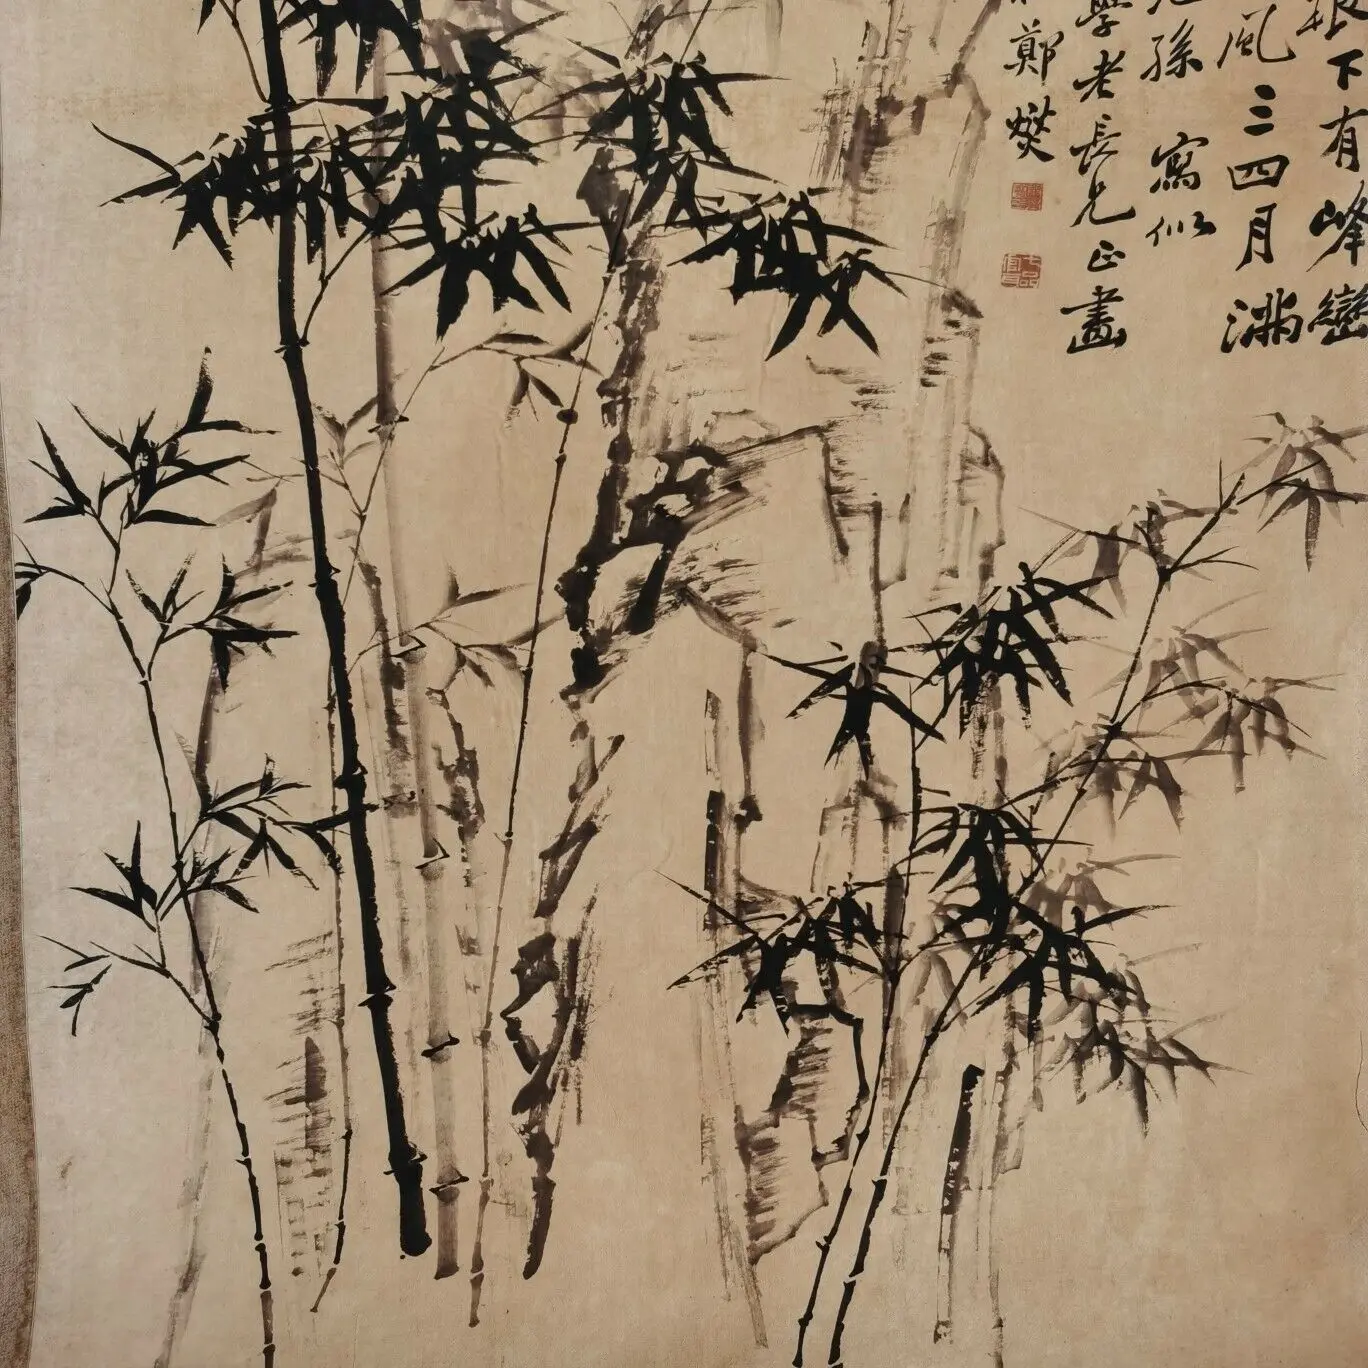 根下有峰巒
風三四月滿
兒孫 寫似
學老長兄正畫
鄭燮